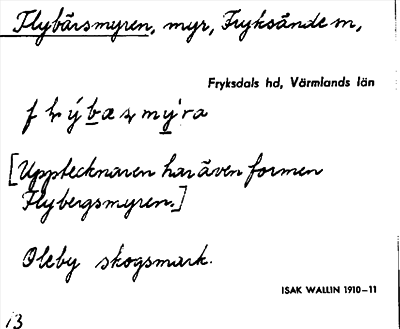 Flybärsmyren, myr, Fryksände sn,
Fryksdals hd, Värmlands län
[Upptecknaren har även formen
Flybergsmyren.]
Oleby skogsmark.
ISAK WALLIN 1910–11
13